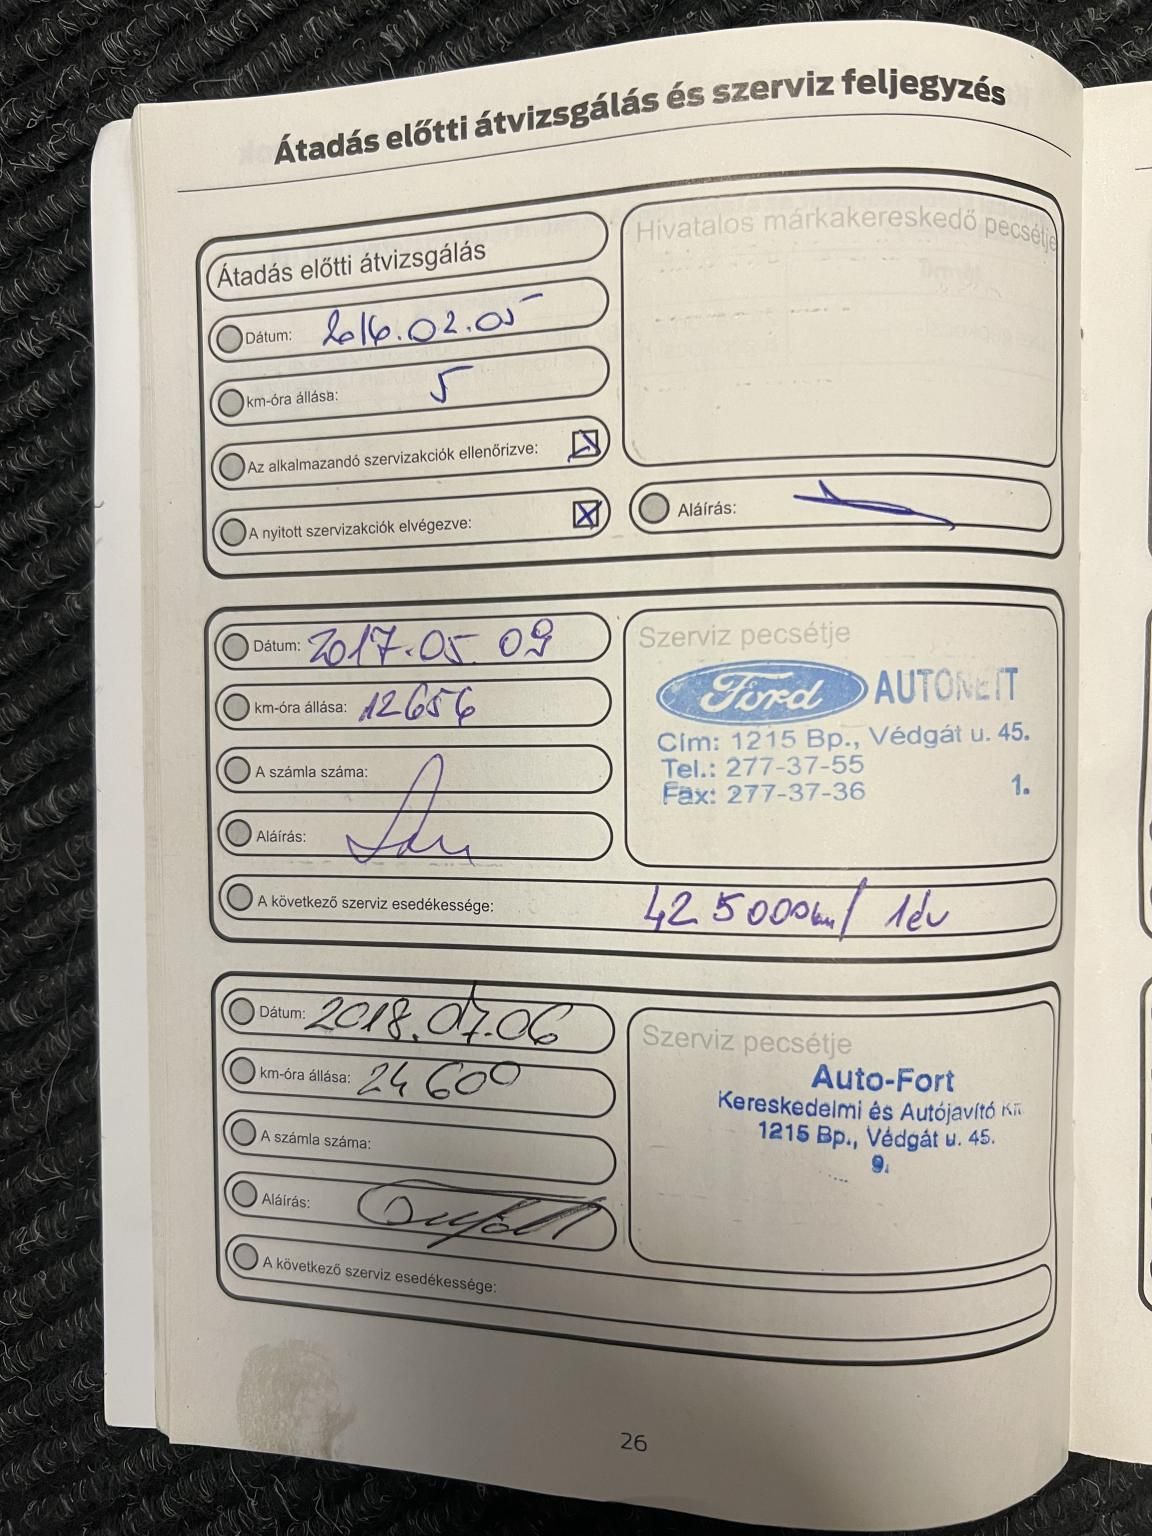 Átadás előtti átvizsgálás és szerviz feljegyzés
Átadás előtti átvizsgálás
Hivatalos márkakereskedő pecsétje
Dátum: 2016.02.05
km-óra állása: 5
Az alkalmazandó szervizakciók ellenőrizve:
A nyitott szervizakciók elvégezve:
Aláírás:
Dátum: 2017.05.09
km-óra állása: 12656
A számla száma:
Aláírás:
Szerviz pecsétje
Ford AUTONEIT
Cím: 1215 Bp., Védgát u. 45.
Tel.: 277-37-55
Fax: 277-37-36
1.
A következő szerviz esedékessége: 425000km/ 1év
Dátum: 2018.07.06
km-óra állása: 24600
A számla száma:
Aláírás:
Szerviz pecsétje
Auto-Fort
Kereskedelmi és Autójavító Kft.
1215 Bp., Védgát u. 45.
9.
A következő szerviz esedékessége:
26